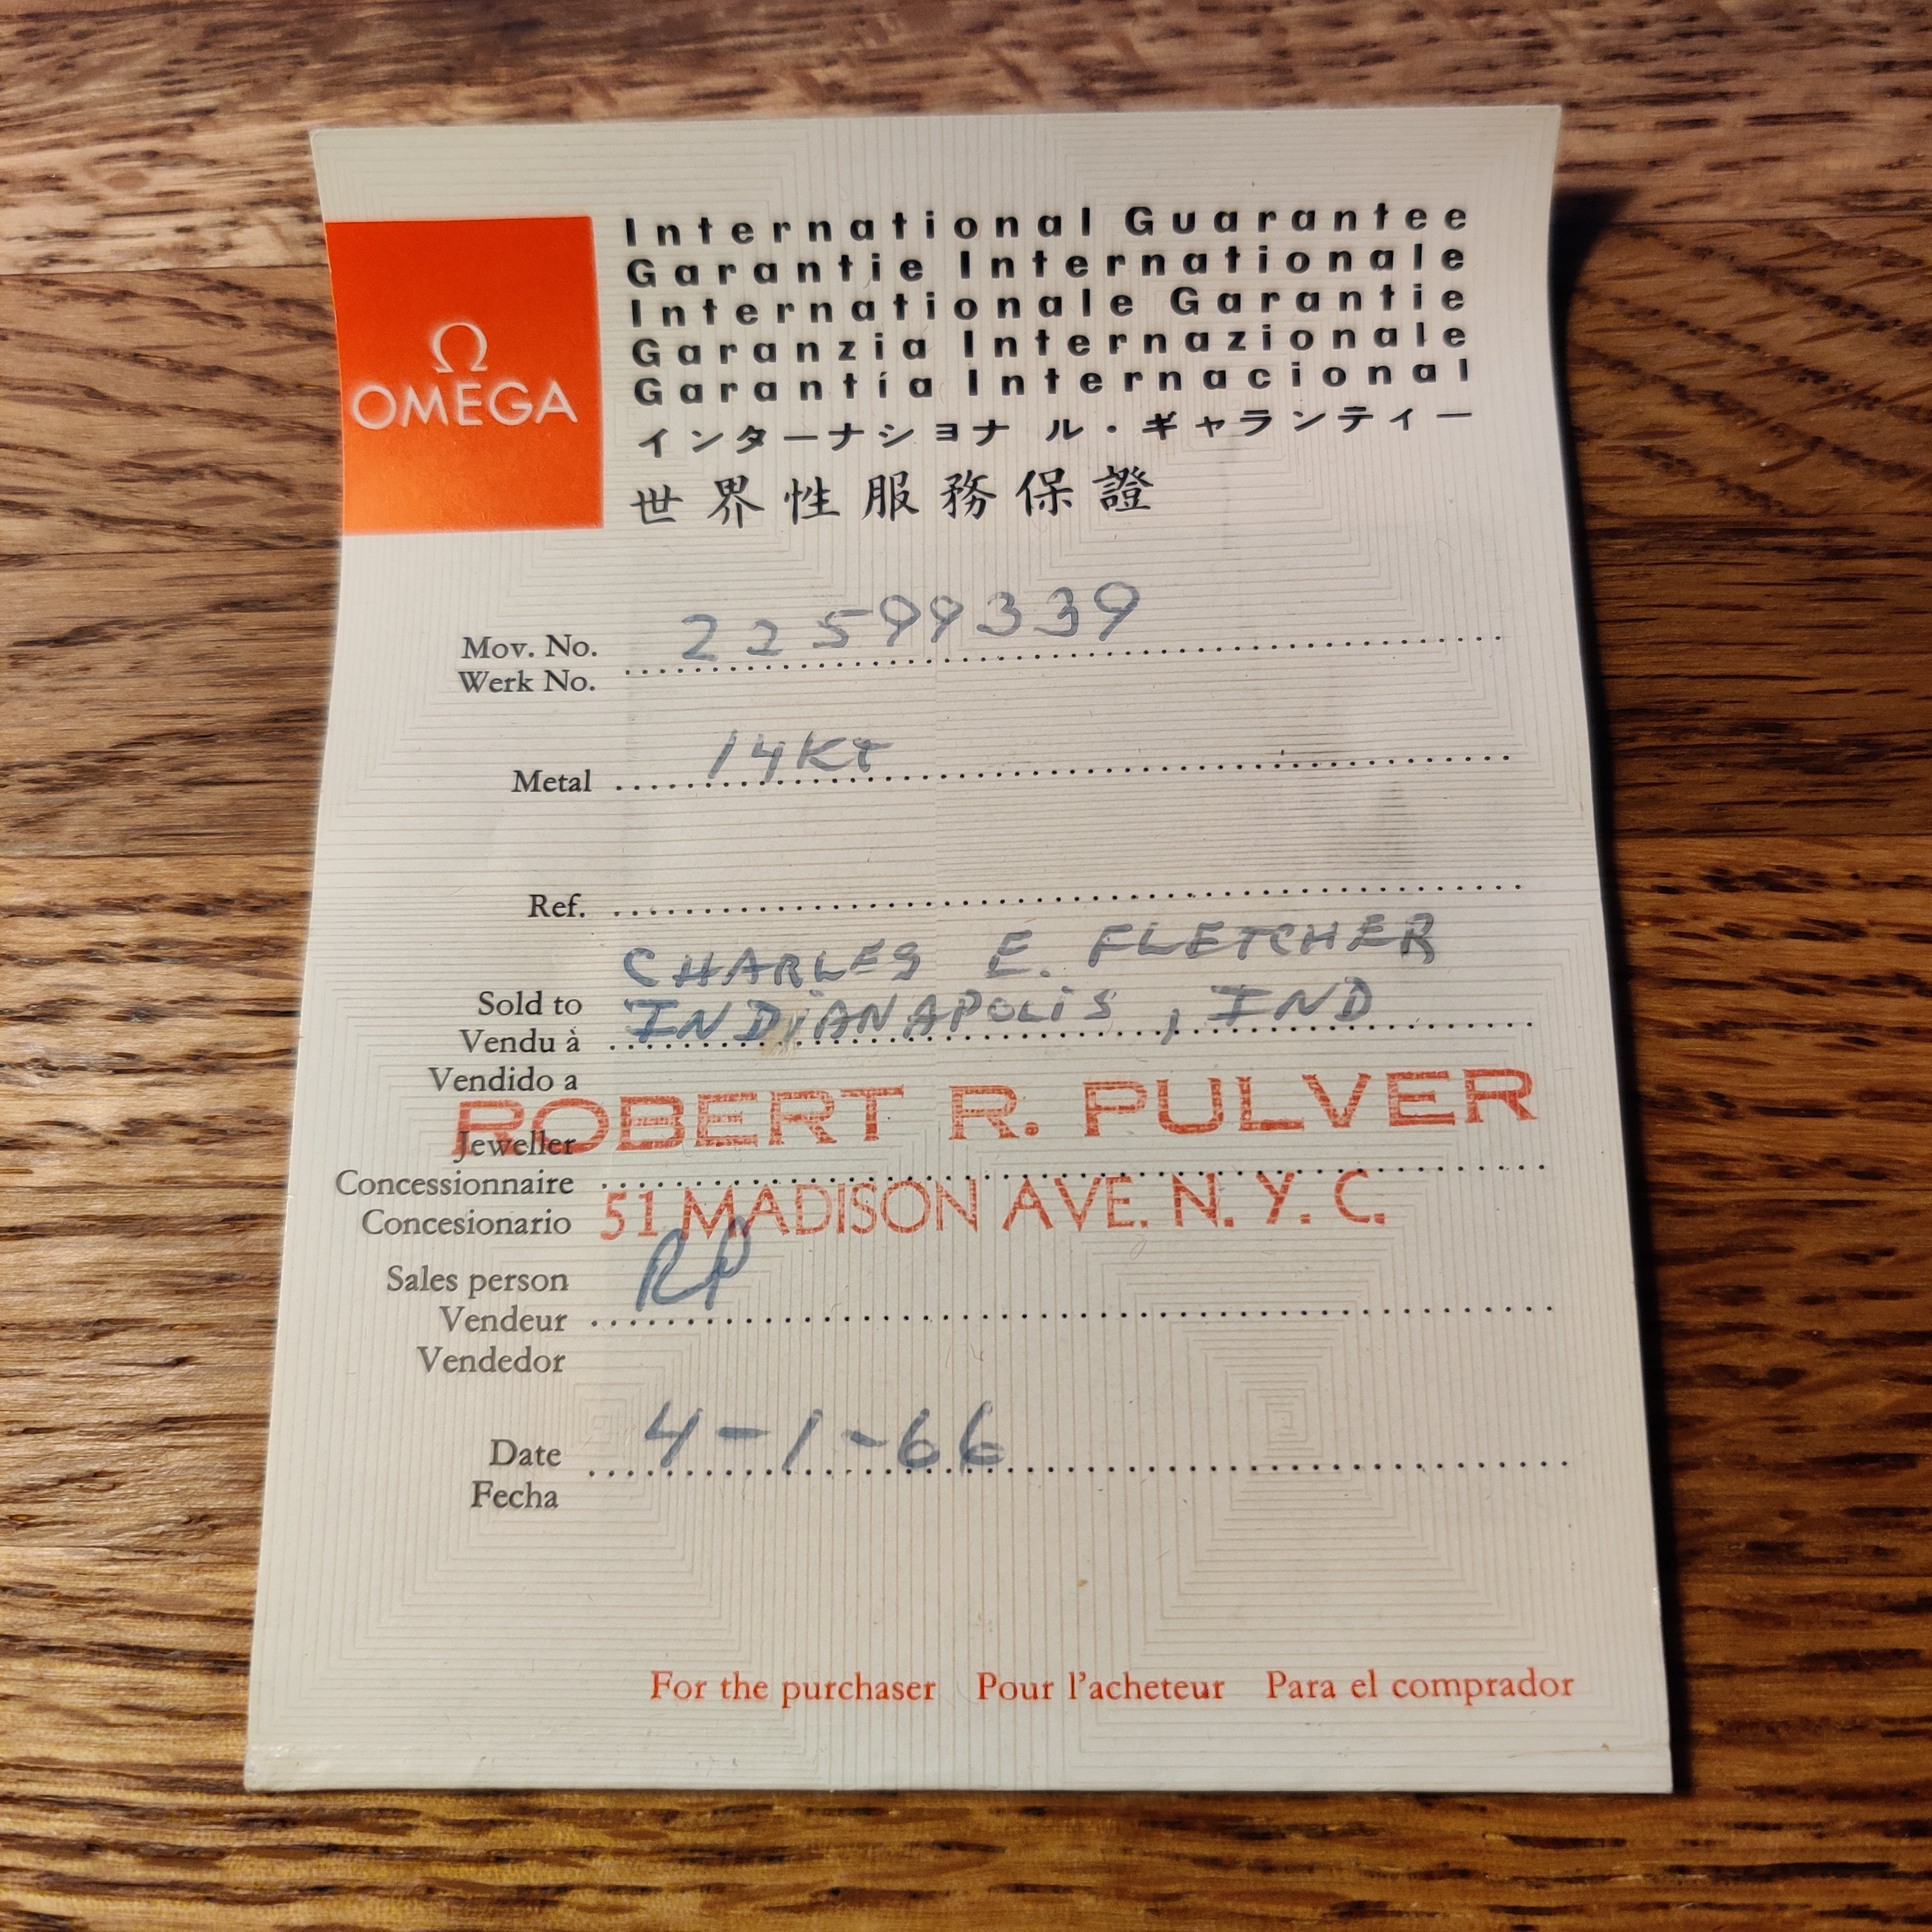 Ω
OMEGA
International Guarantee
Garantie Internationale
Internationale Garantie
Garanzia Internazionale
Garantía Internacional
インターナショナル・ギャランティー
世界性服務保證
Mov. No. 22599339
Werk No.
Metal 14KT
Ref.
CHARLES E. FLETCHER
Sold to INDIANAPOLIS, IND
Vendu à
Vendido a
ROBERT R. PULVER
Jeweller
Concessionnaire
Concesionario 51 MADISON AVE. N. Y. C.
Sales person RP
Vendeur
Vendedor
Date 4-1-66
Fecha
For the purchaser Pour l'acheteur Para el comprador